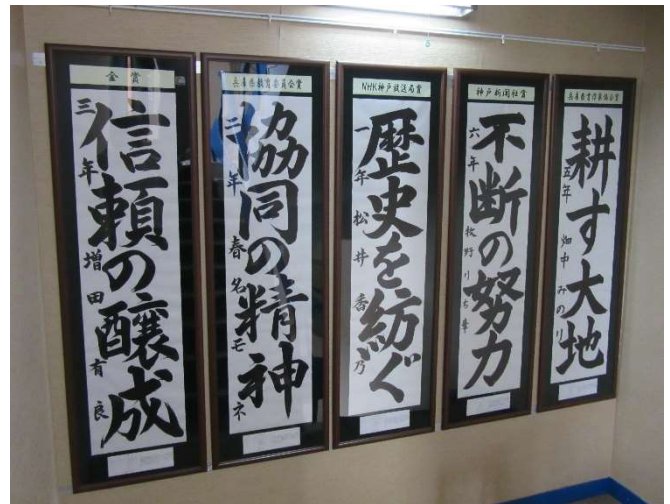 金賞
信頼の醸成
三年 増田有良
兵庫県教育委員会賞
協同の精神
二年 春名モネ
NHK神戸放送局賞
歴史を紡ぐ
一年 松井香乃
神戸新聞社賞
不断の努力
六年 牧野りち華
兵庫県書作家協会賞
耕す大地
五年 畑中みのり